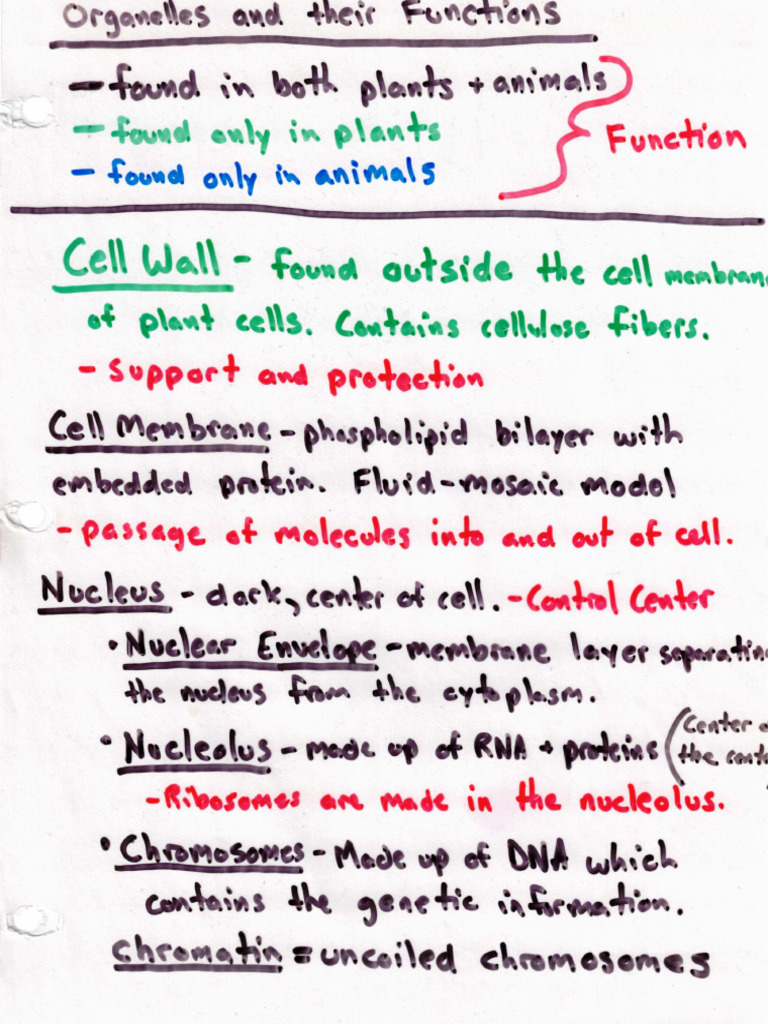 Organelles and their Functions
- found in both plants + animals
- found only in plants
- found only in animals
Function
Cell Wall - found outside the cell membrane
of plant cells. Contains cellulose fibers.
- Support and protection
Cell Membrane - phospholipid bilayer with
embedded protein. Fluid-mosaic model
- passage of molecules into and out of cell.
Nucleus - dark, center of cell. - Control Center
• Nuclear Envelope - membrane layer separatin
the nucleus from the cytoplasm.
• Nucleolus - made up of RNA + proteins (Center o
the cente
- Ribosomes are made in the nucleolus.
• Chromosomes - Made up of DNA which
contains the genetic information.
chromatin = uncoiled chromosomes